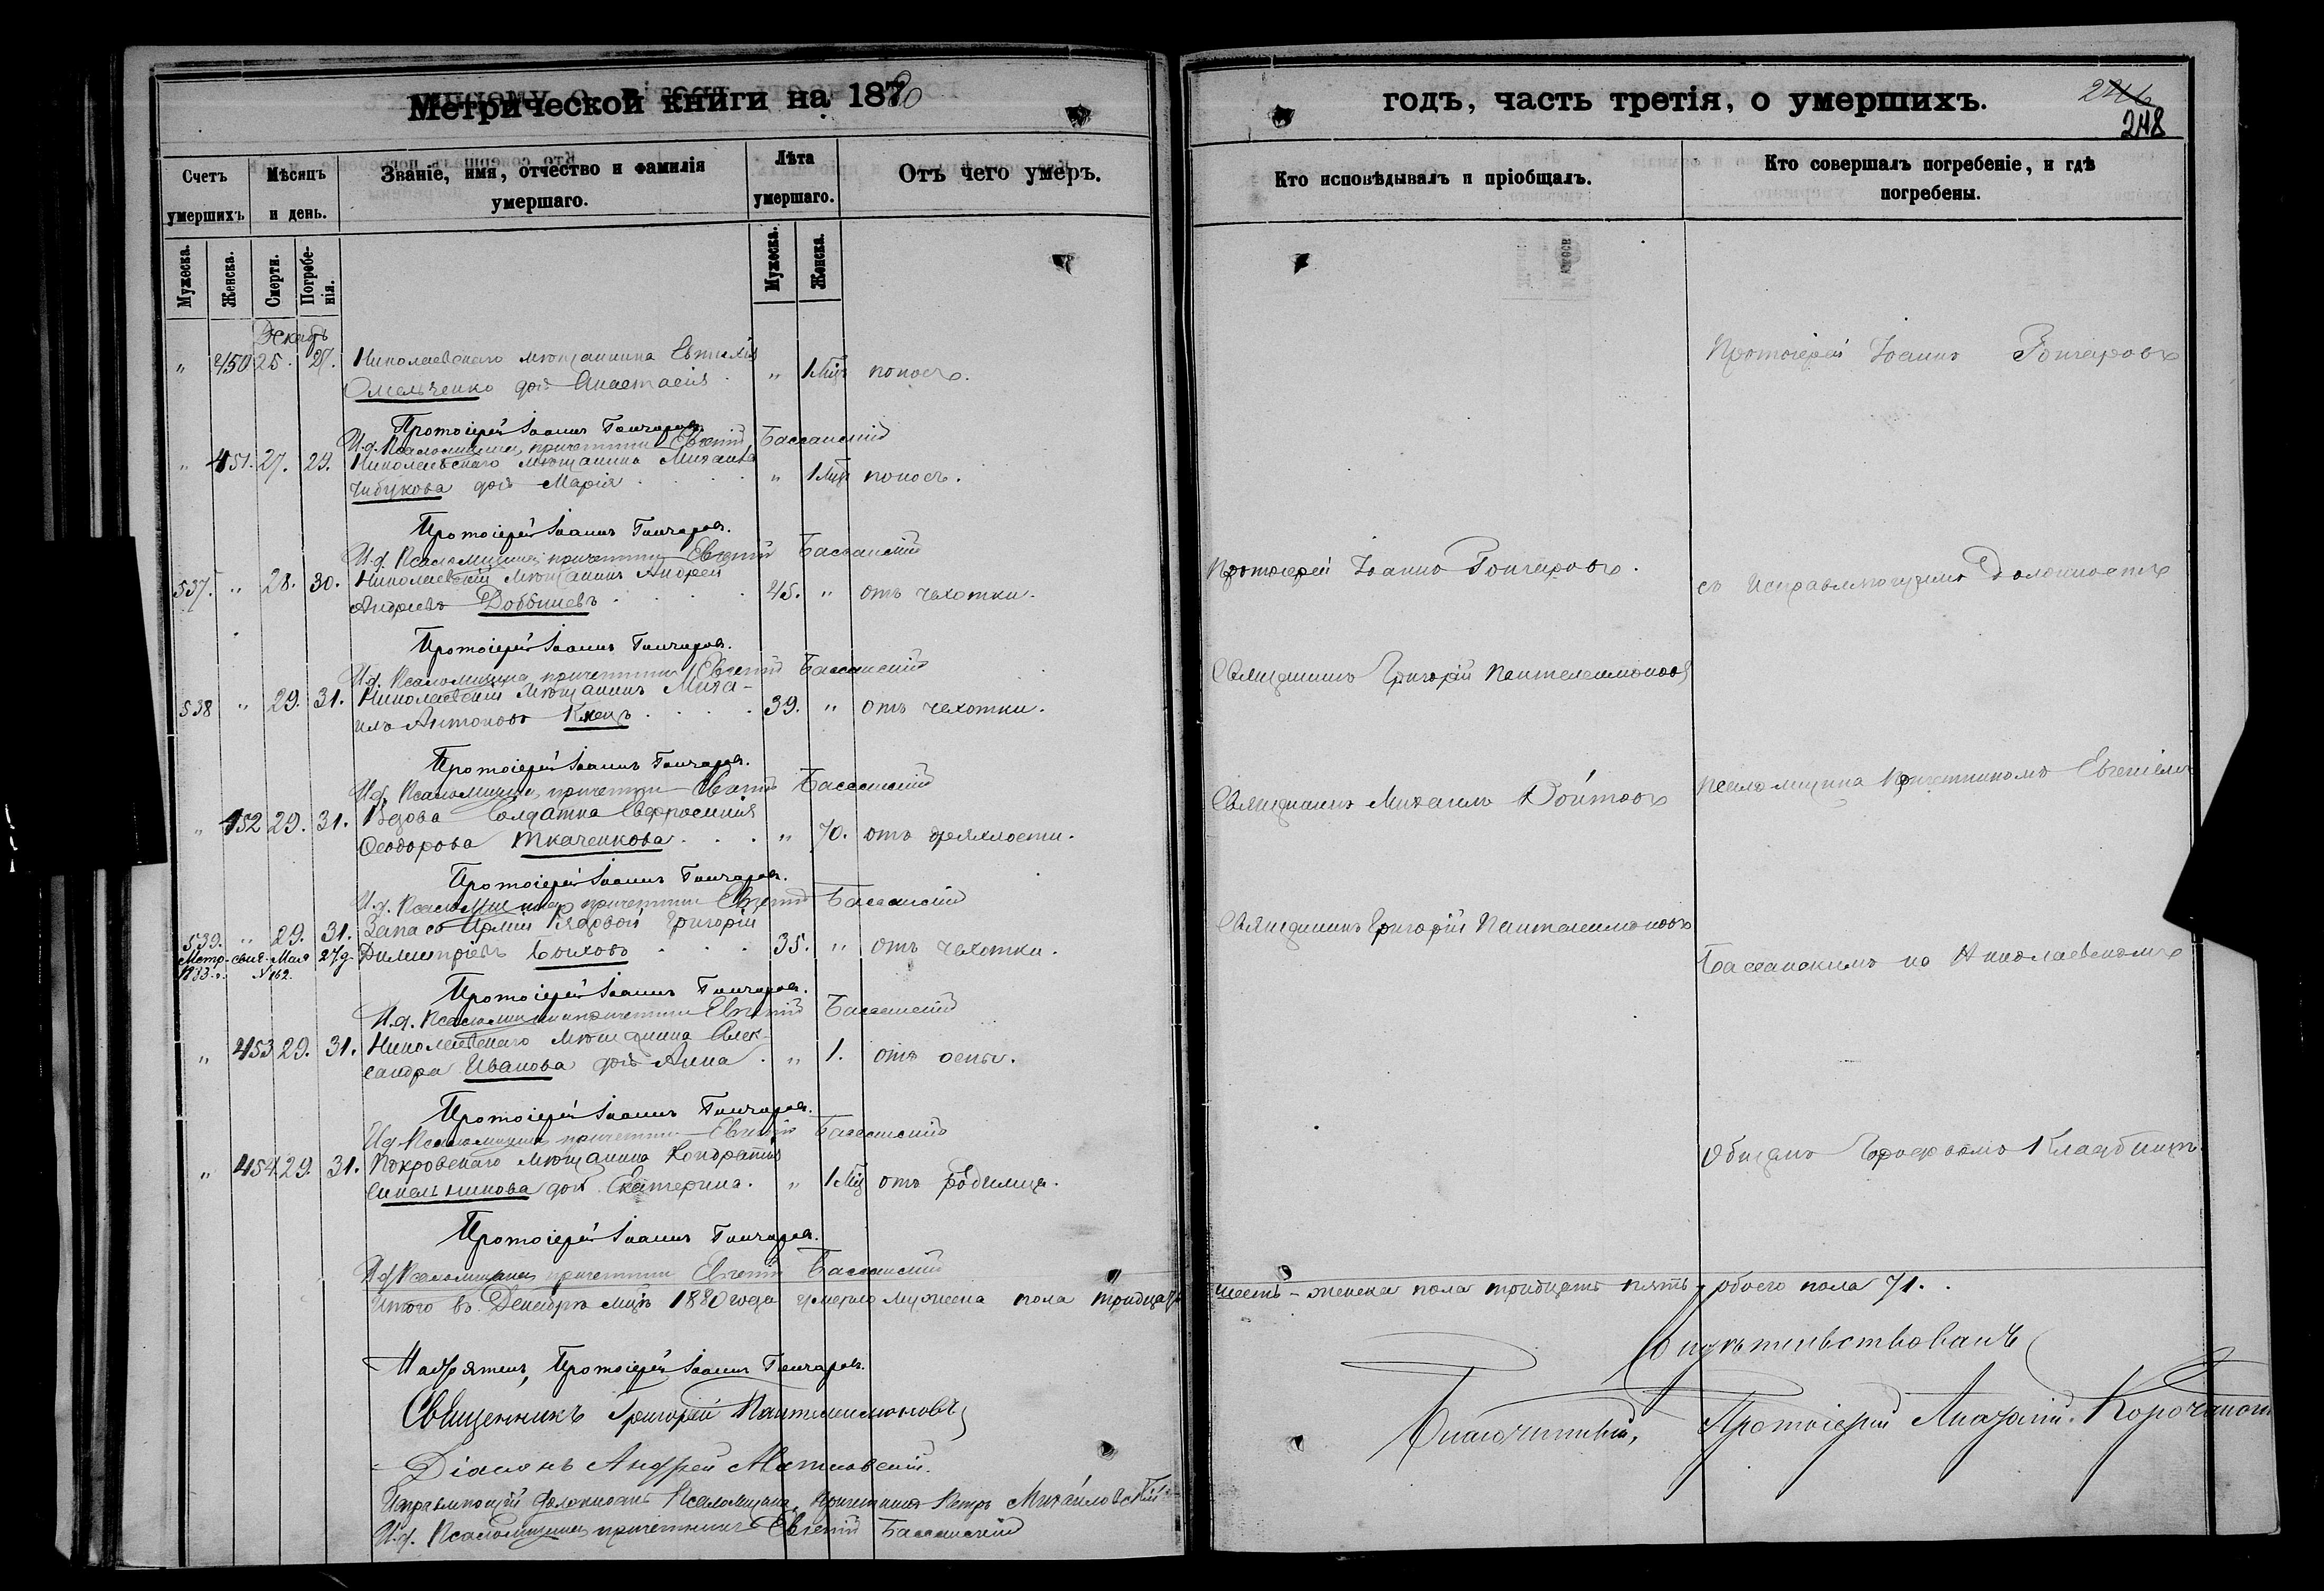 Метрической книги на 1880
Счетъ умершихъ
Мѣсяцъ и день.
Званіе, имя, отчество и фамилія умершаго.
Лѣта умершаго.
Отъ чего умеръ.
Мужеска.
Женска.
Смерти.
Погребенія.
Мужеска.
Женска.
Декабрь
" 450 25. 27. Николаевскаго мѣщанина Евтихія
Омельченко дочь Анастасія " 1 мѣц. поносъ.
Протоіерей Іоаннъ Гончаровъ.
И.д. Псаломщика, причетникъ Евгеній Бассанскій
" 451. 27. 29. Николаевскаго мѣщанина Михаила
Чибукова дочь Марія " 1 мѣц. поносъ.
Протоіерей Іоаннъ Гончаровъ.
И.д. Псаломщика, причетникъ Евгеній Бассанскій
537. " 28. 30. Николаевскій мѣщанинъ Андрей
Андреевъ 45. " отъ чахотки.
Протоіерей Іоаннъ Гончаровъ.
И.д. Псаломщика, причетникъ Евгеній Бассанскій
538 " 29. 31. Николаевскій мѣщанинъ Миха-
илъ Антоновъ 39. " отъ чахотки.
Протоіерей Іоаннъ Гончаровъ.
И.д. Псаломщика, причетникъ Евгеній Бассанскій
" 452 29. 31. Вдова Солдатка Евфросинія
Ѳеодорова Ткаченкова " 70. отъ дряхлости.
Протоіерей Іоаннъ Гончаровъ.
И.д. Псаломщика, причетникъ Евгеній Бассанскій
539. " 29. 31. Запаса Арміи Рядовой Григорій
Метр. свид. Мая 27 д. Димитріевъ Быховъ 35. " отъ чахотки.
1883 г. № 162.
Протоіерей Іоаннъ Гончаровъ.
И.д. Псаломщика причетникъ Евгеній Бассанскій
" 453 29. 31. Николаевскаго мѣщанина Алек-
сандра Иванова дочь Анна " 1. отъ оспы.
Протоіерей Іоаннъ Гончаровъ.
И.д. Псаломщика, причетникъ Евгеній Бассанскій
" 454 29. 31. Покровскаго мѣщанина Кондратія
Синельникова дочь Екатерина. " 1 мѣц. отъ родимца.
Протоіерей Іоаннъ Гончаровъ.
И.д. Псаломщика, причетникъ Евгеній Бассанскій
Итого въ Декабрѣ мцѣ 1880 года умерло мужеска пола тридцать
Протоіерей Іоаннъ Гончаровъ.
Священникъ Григорій Пантелеимоновъ
Діаконъ Андрей
Исправляющій должность Псаломщика, причетникъ Петръ Михайловскій
И.д. Псаломщика, причетникъ Евгеній Бассанскій
годъ, часть третія, о умершихъ.
246
248
Кто исповѣдывалъ и пріобщалъ.
Кто совершалъ погребеніе, и гдѣ погребены.
Протоіерей Іоаннъ Гончаровъ
Протоіерей Іоаннъ Гончаровъ.
съ Исправляющимъ Должность
Священникъ Григорій Пантелеимоновъ
Псаломщика Причетникомъ Евгеніемъ
Священникъ Михаилъ Войтовъ
Священникъ Григорій Пантелеимоновъ
Бассанскимъ на Николаевскомъ
Общемъ Городскомъ Кладбищѣ.
шесть – женска пола тридцать пять, обоего пола 71.
Свидѣтельствовалъ
Благочинный, Протоіерей